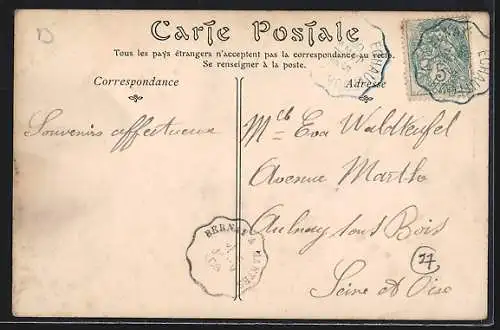 Carte Postale
Tous les pays étrangers n'acceptent pas la correspondance au recto.
Se renseigner à la poste.
Correspondance
Adresse
5
Souvenirs affectueux
Melle Eva Waldteufel
Avenue Marthe
Aulnay sous Bois
Seine et Oise
27